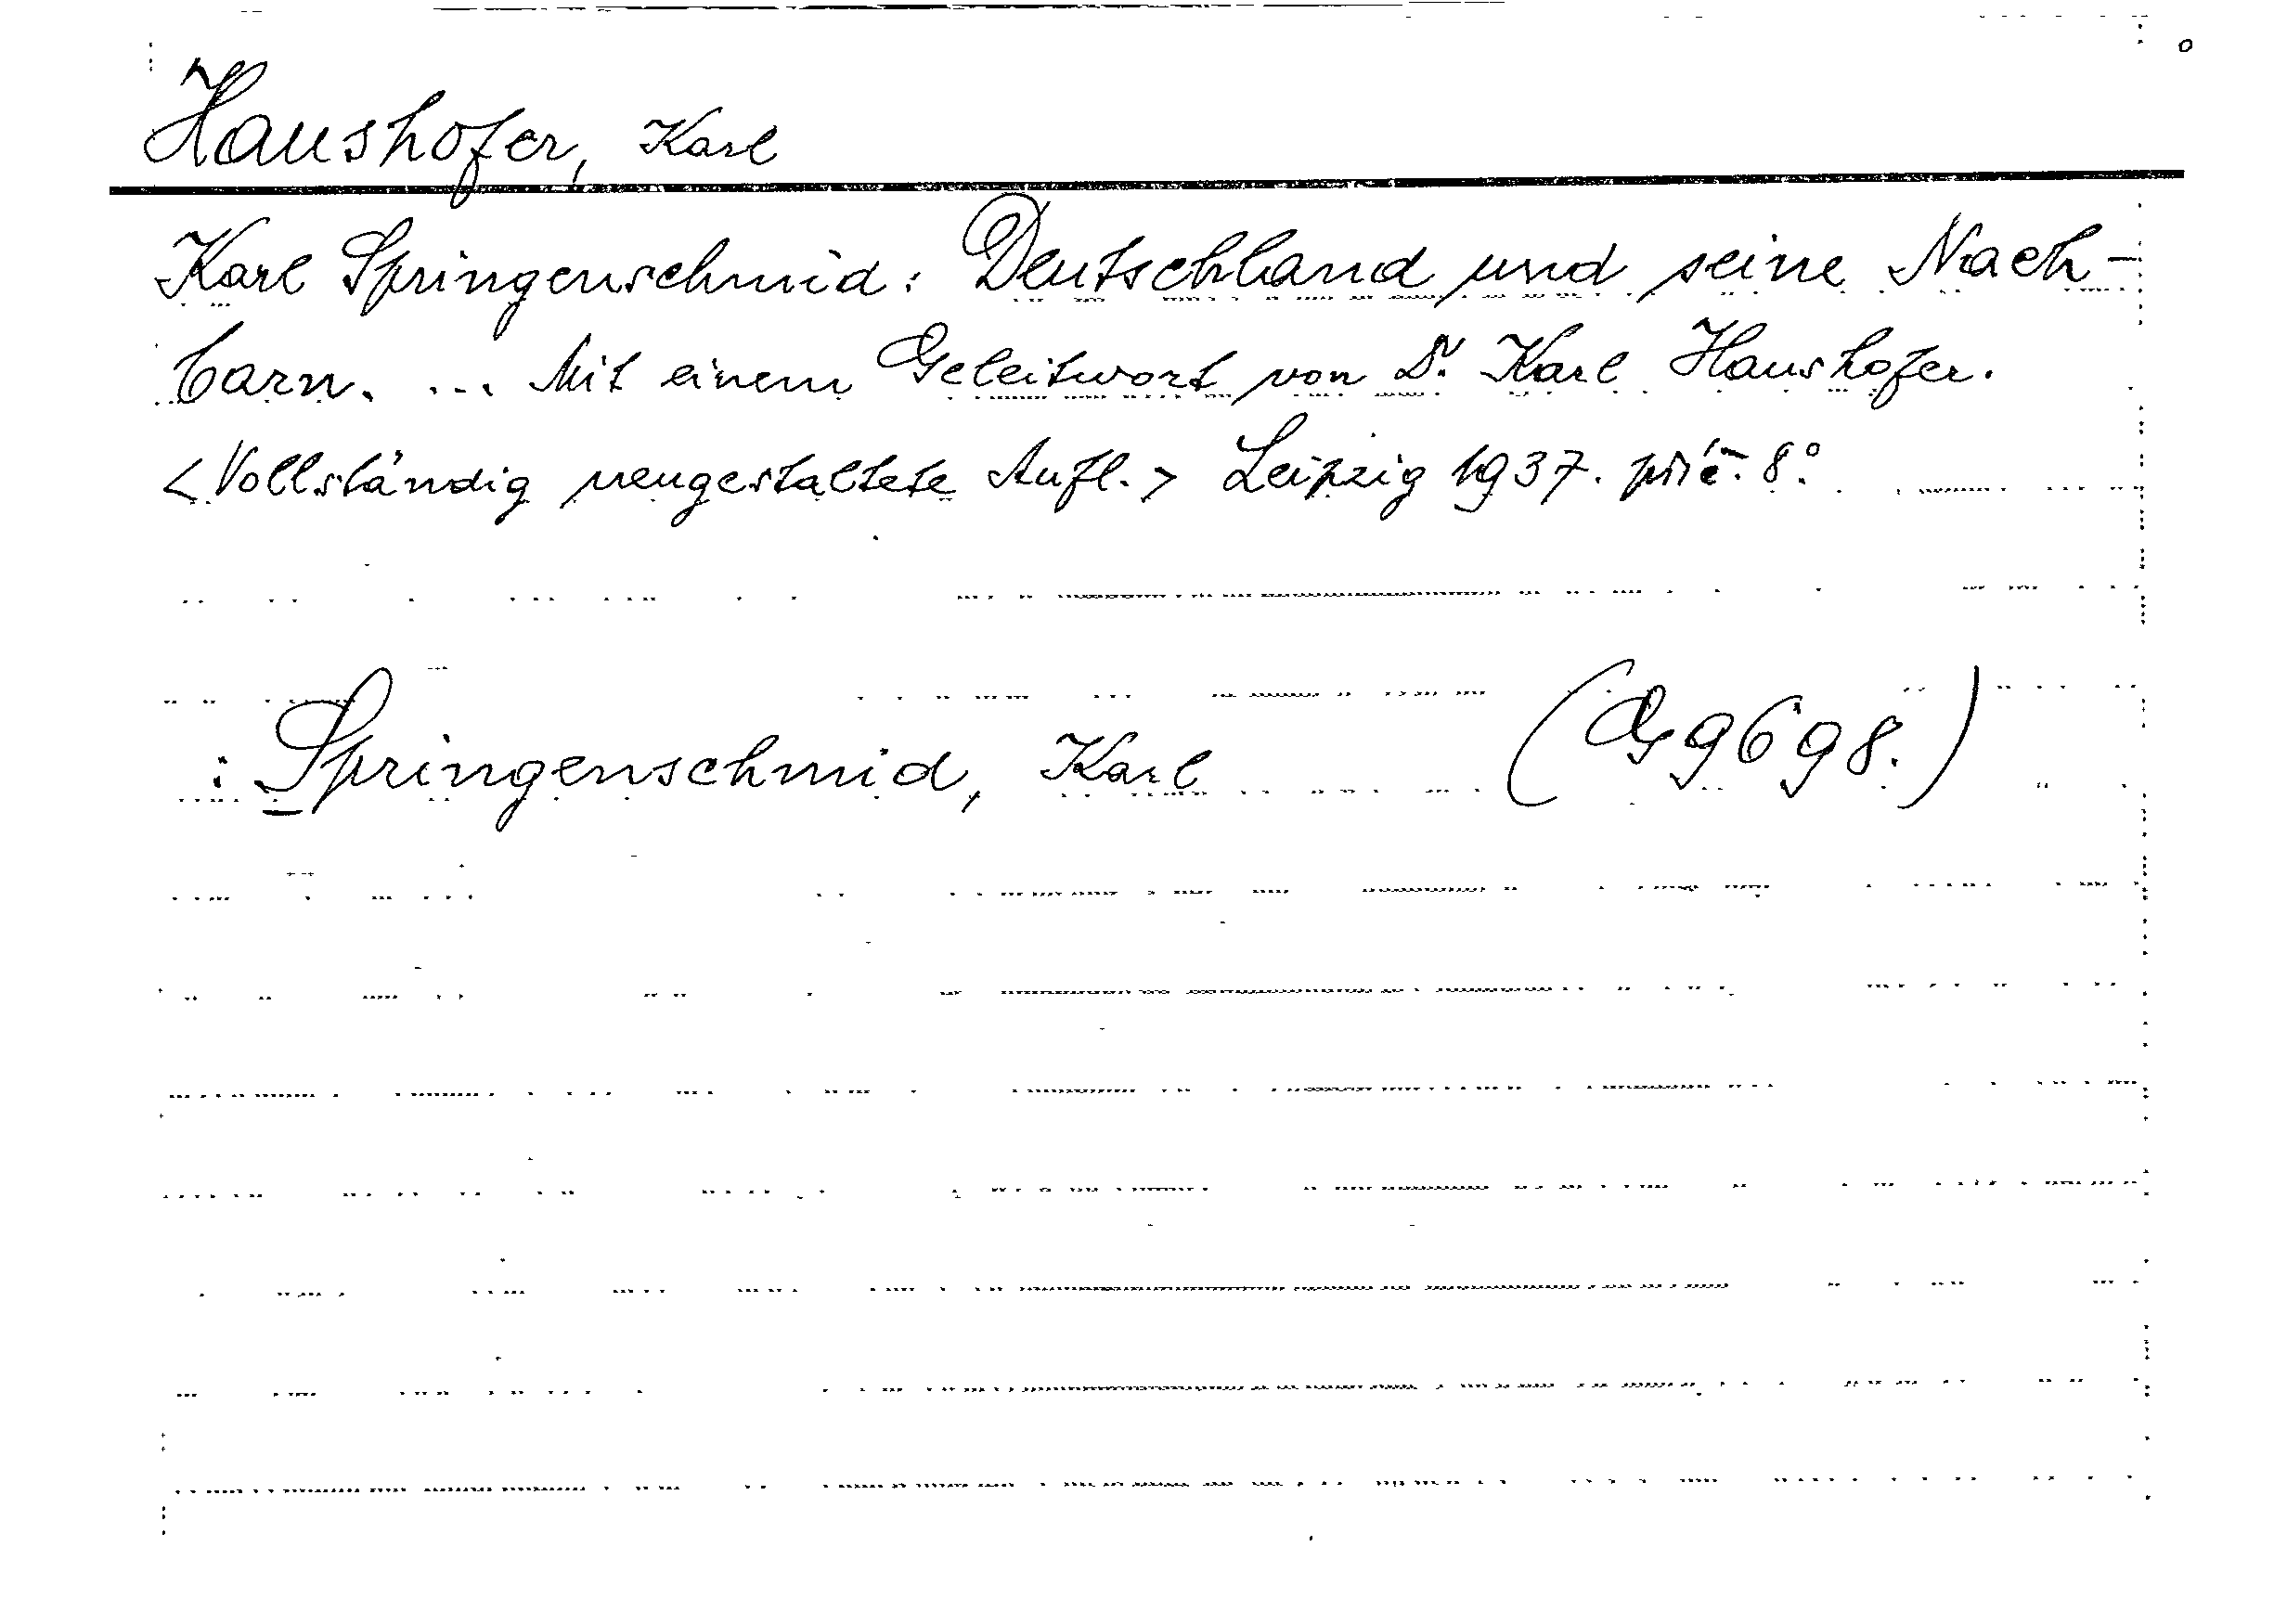 Haushofer, Karl
Karl Springenschmid: Deutschland und seine Nach-
barn. ... Mit einem Geleitwort von Dr. Karl Haushofer.
<Vollständig neugestaltete Aufl.> Leipzig 1937. 8°.
: Springenschmid, Karl (G 9698.)